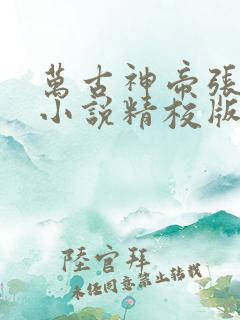 萬古神帝張
小說精校版
陸官拜
未經同意禁止轉載